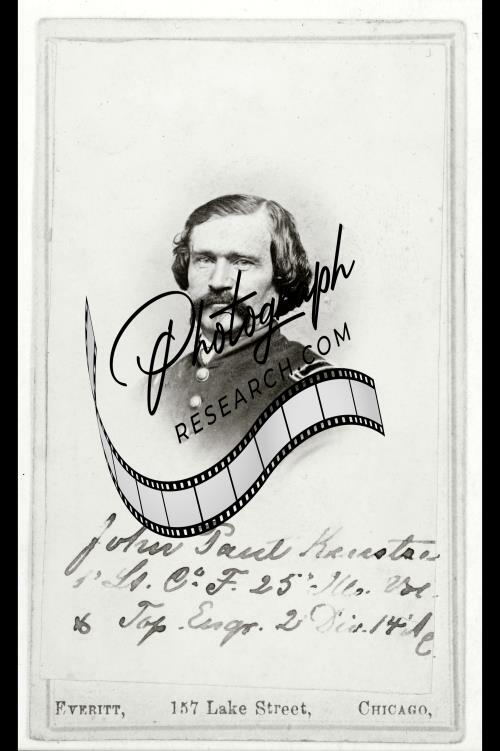 Photograph
RESEARCH.COM
John Paul
1st Lt. Co. F. 25th Ills. Vol.
& Top. Engr. 2 Div. 14 A C
EVERITT, 157 Lake Street, CHICAGO,